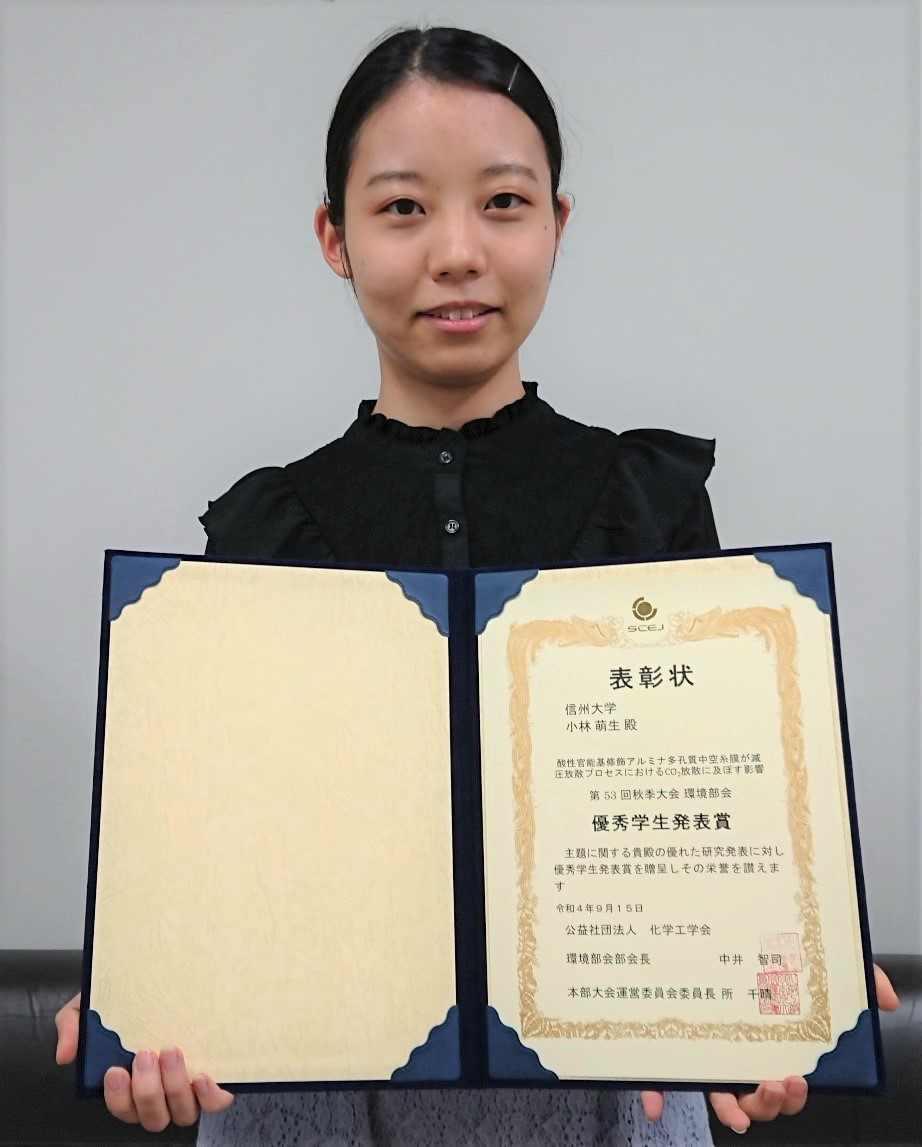 SCEJ
表彰状
信州大学
小林 萌生 殿
酸性官能基修飾アルミナ多孔質中空糸膜が減
圧放散プロセスにおけるCO₂放散に及ぼす影響
第 53 回秋季大会 環境部会
優秀学生発表賞
主題に関する貴殿の優れた研究発表に対し
優秀学生発表賞を贈呈しその栄誉を讃えま
す
令和4年9月15日
公益社団法人 化学工学会
環境部会部会長 中井 智司
本部大会運営委員会委員長 所 千晴